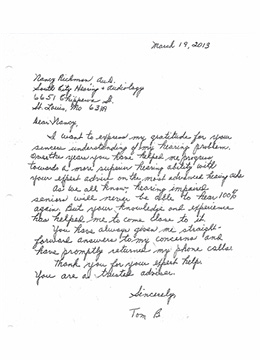 March 19, 2013
Nancy Richman Au.D.
South City Hearing & Audiology
6651 Chippewa St.
St. Louis, Mo 63109
Dear Nancy,
I want to express my gratitude for your
sincere understanding of my hearing problem.
Over the years you have helped me progress
towards a more superior hearing ability with
your expert advice on the most advanced hearing aids.
As we all know hearing impaired
seniors will never be able to hear 100%
again But your knowledge and experience
has helped me to come close to it.
You have always given me straight-
forward answers to my concerns and
have promptly returned my phone calls.
Thank you for your expert help.
You are a trusted adviser.
Sincerely,
Tom B